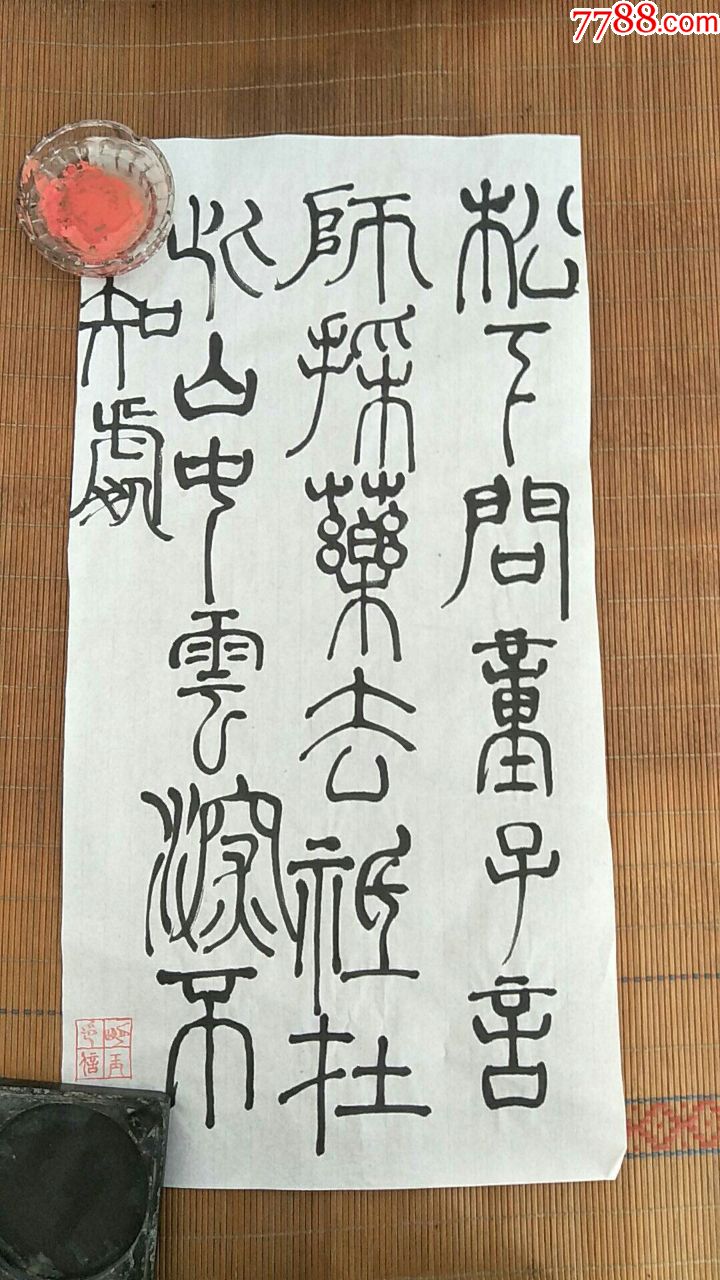 7788.com
松下問童子言
師採藥去祗在
此山中雲深不
知處